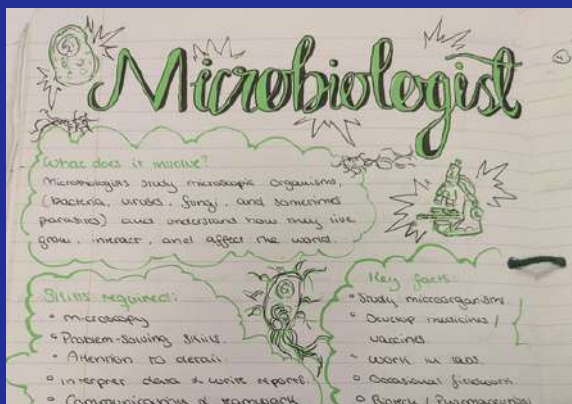 Microbiologist
What does it involve?
Microbiologists study microscopic organisms,
(bacteria, viruses, fungi, and sometimes
parasites) and understand how they live
grow, interact, and affect the world.
Skills required:
• microscopy
• Problem-solving skills.
• Attention to detail.
• interpret data & write reports.
• Communication & teamwork
Key facts:
• Study microorganisms
• Develop medicines /
vaccines
• Work in labs.
• Occasional fieldwork
• Biotech / Pharmaceutical